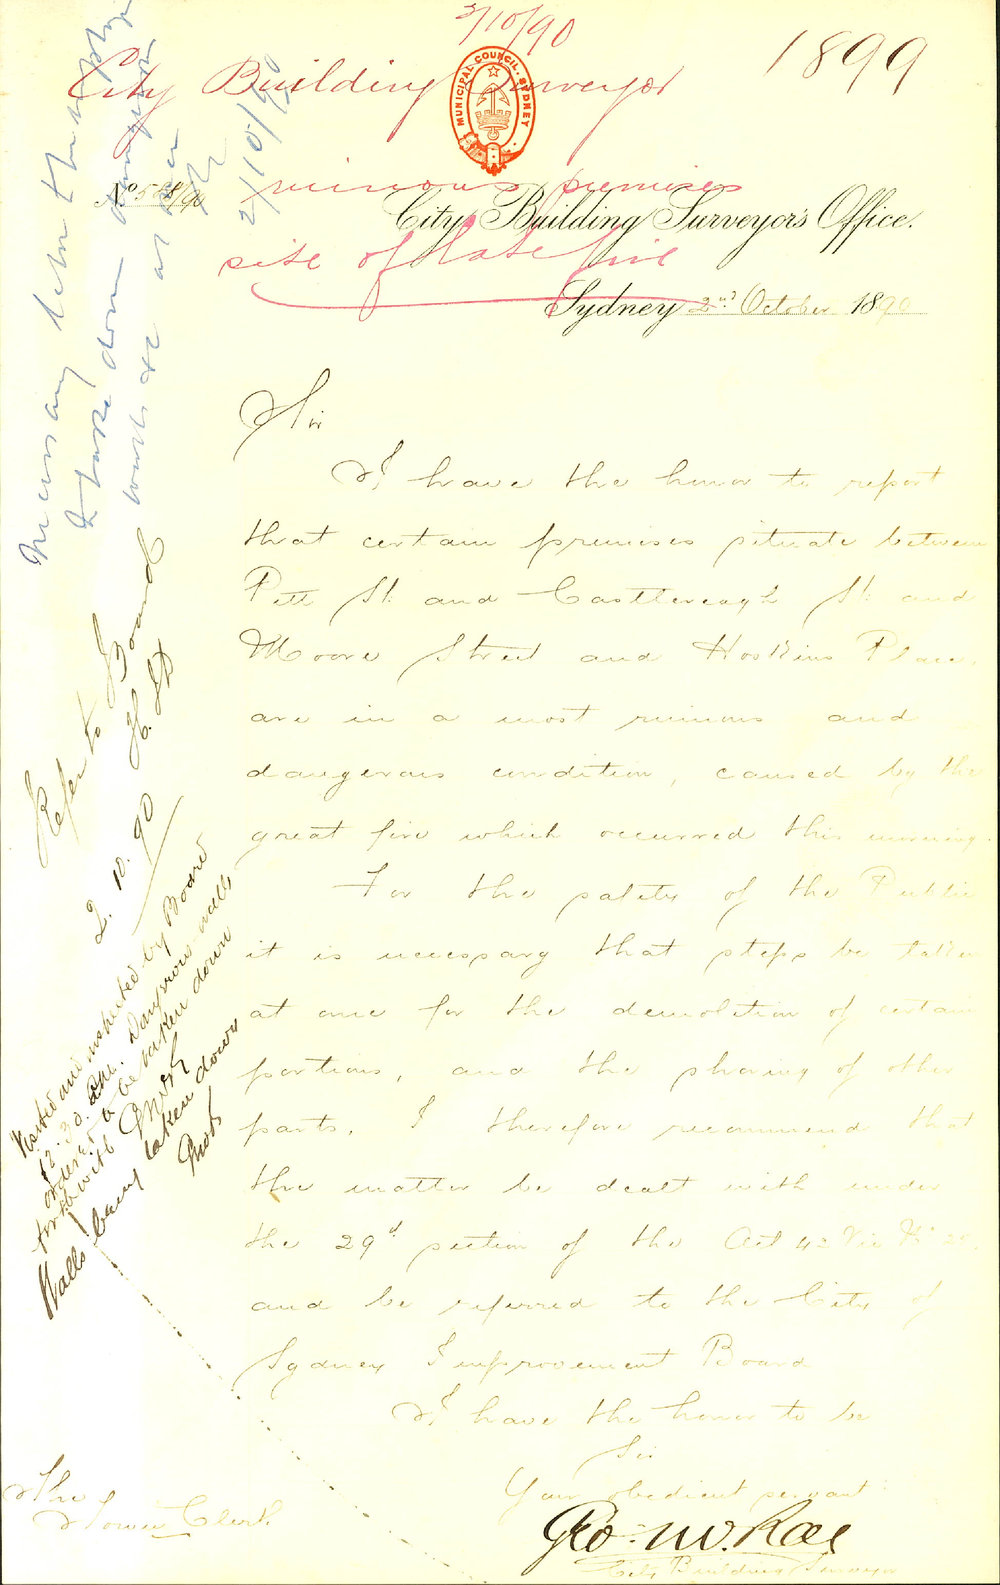 2/10/90
City Building Surveyor
1899
MUNICIPAL COUNCIL. SYDNEY.
ruinous premises
No.
City Building Surveyor's Office.
site of late fire
Sydney 2nd October 1890
Sir
I have the honor to report
that certain premises situate between
Pitt St. and Castlereagh St. and
Moore Street and Hoskins Place,
are in a most ruinous and
dangerous condition, caused by the
great fire which occurred this morning.
For the safety of the Public
it is necessary that steps be taken
at once for the demolition of certain
portions, and the shoring of other
parts, I therefore recommend that
the matter be dealt with under
the 29d section of the Act 42 Vic No
and be referred to the City of
Sydney Improvement Board
I have the honor to be
Sir
Your obedient servant
Geo. W. Rae
City Building Surveyor
The
Town Clerk
Necessary
to take down dangerous
walls &c at once
2/10/90
Refer to Board
2.10.90
Visited and inspected by Board
12.30. Dangerous walls
ordered to be taken down
forthwith
Walls being taken down